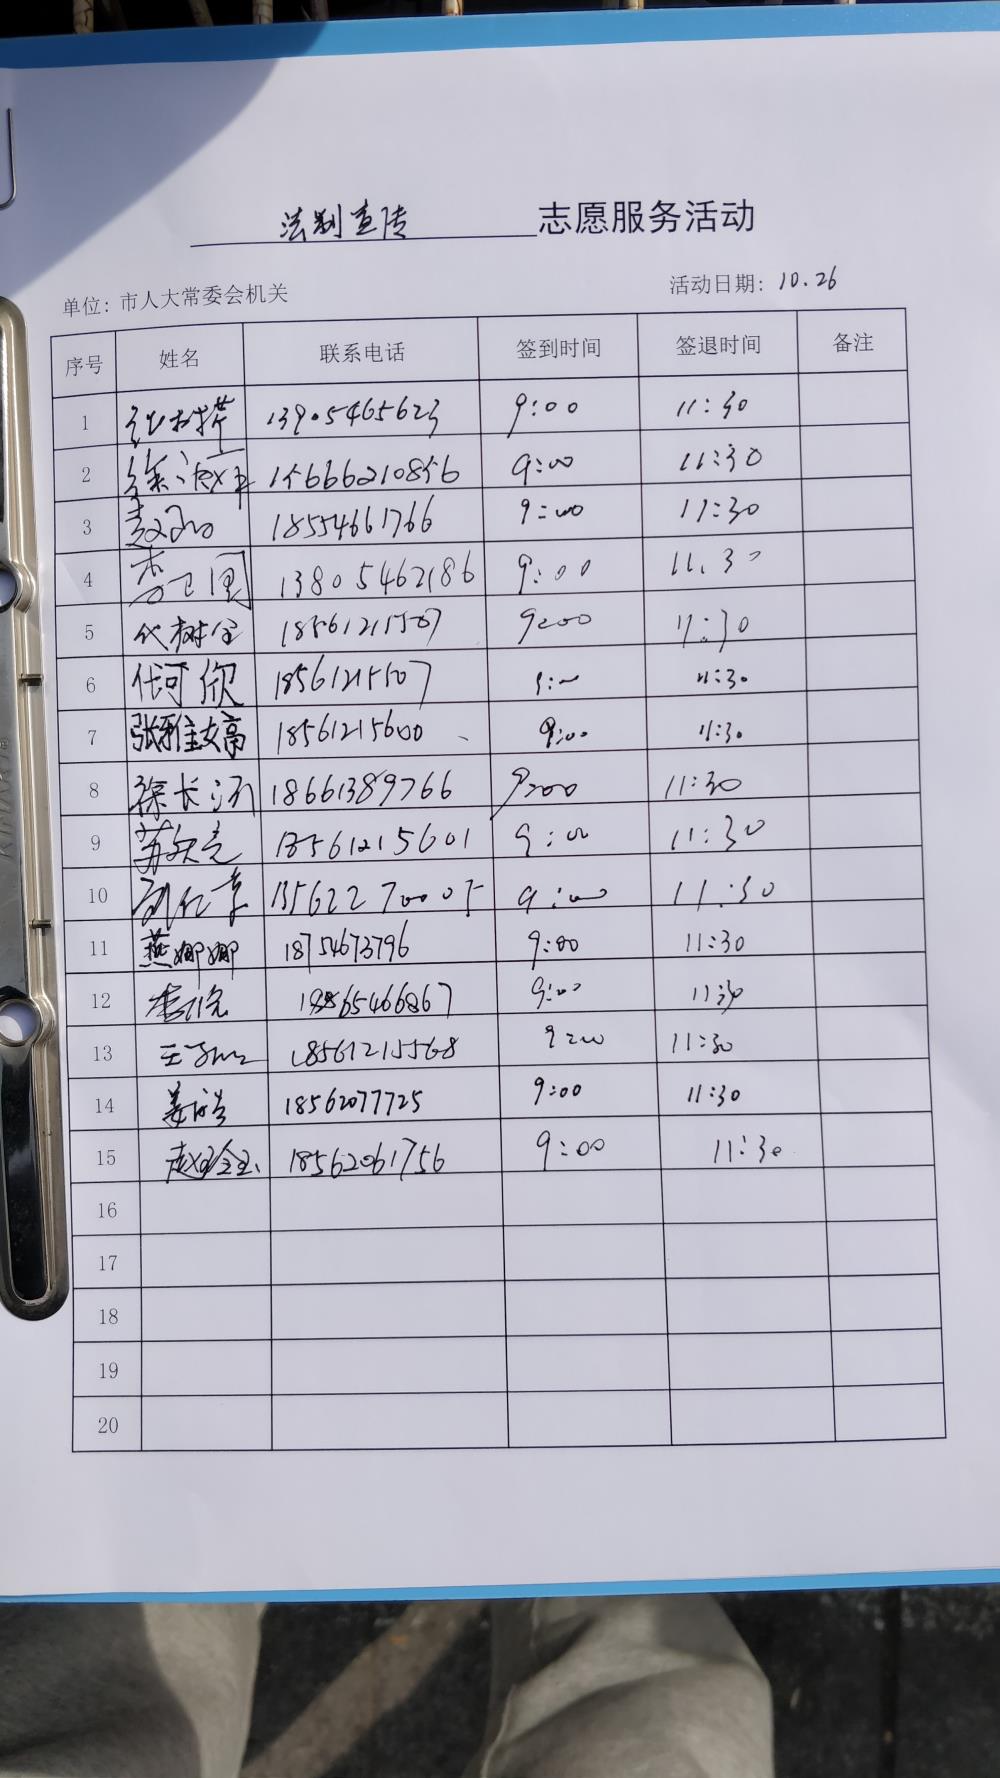 法制宣传 志愿服务活动
单位：市人大常委会机关 活动日期：10.26
序号 姓名 联系电话 签到时间 签退时间 备注
1 13905465623 9:00 11:30
2 15666210856 9:00 11:30
3 18554661766 9:00 11:30
4 李卫国 13805462186 9:00 11:30
5 代树全 18561215507 9:00 11:30
6 代可欣 18561215507 9:00 11:30
7 张雅婷 18561215600 9:00 11:30
8 徐长河 18661389766 9:00 11:30
9 苏文亮 18561215601 9:00 11:30
10 13562270005 9:00 11:30
11 燕娜娜 18754673796 9:00 11:30
12 9:00 11:30
13 18561215568 9:00 11:30
14 姜浩 18562077725 9:00 11:30
15 18562061756 9:00 11:30
16
17
18
19
20